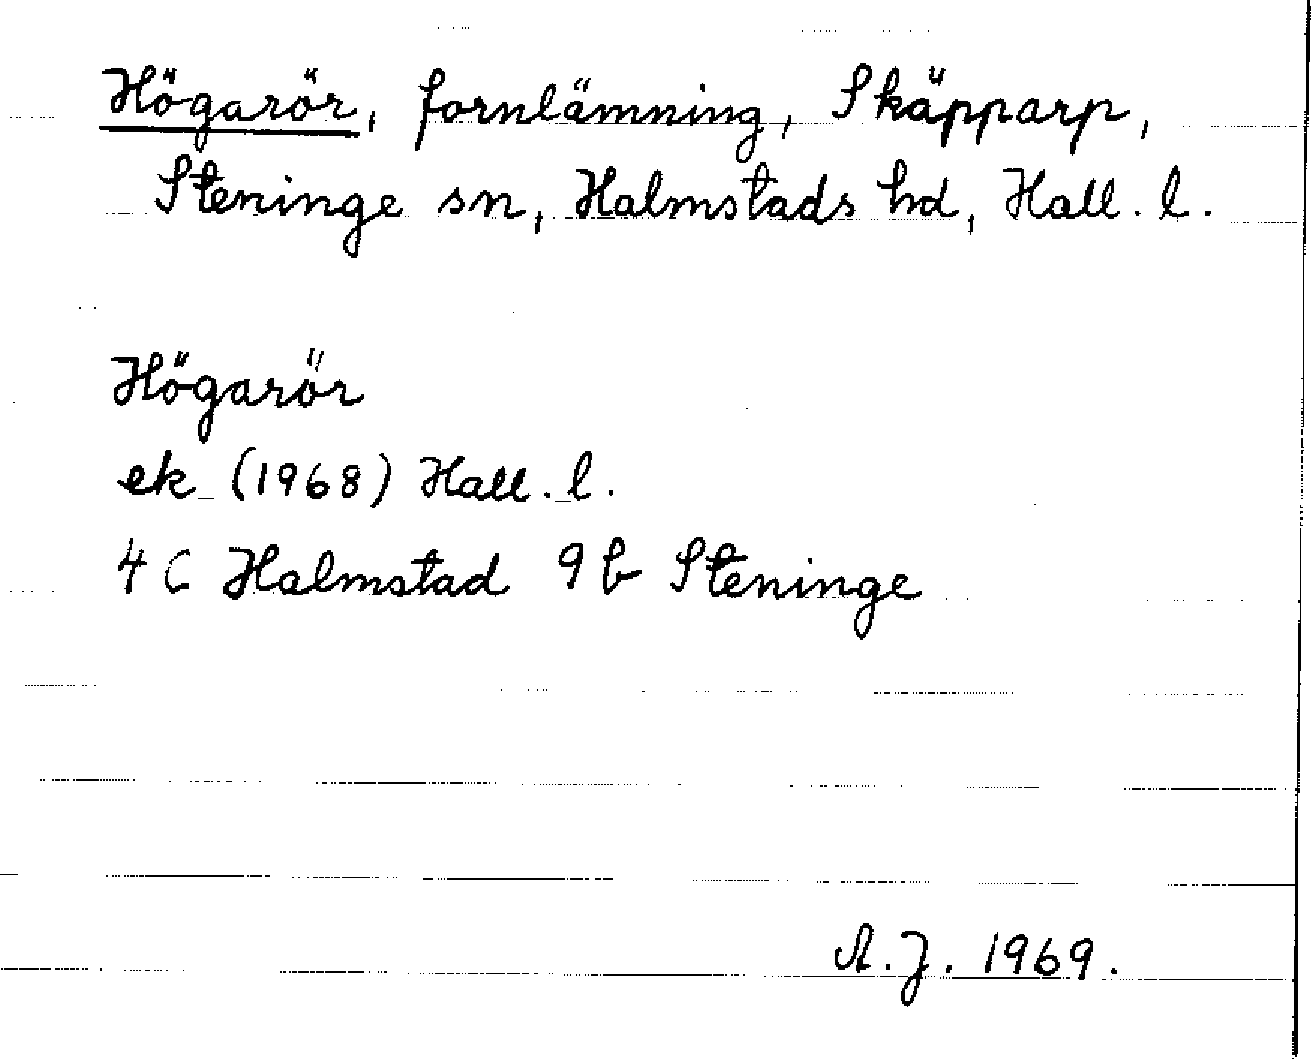 Högarör, fornlämning, Skäpparp,
Steninge sn, Halmstads hd, Hall. l.
Högarör
ek (1968) Hall. l.
4 C Halmstad 9 b Steninge
A. J. 1969.